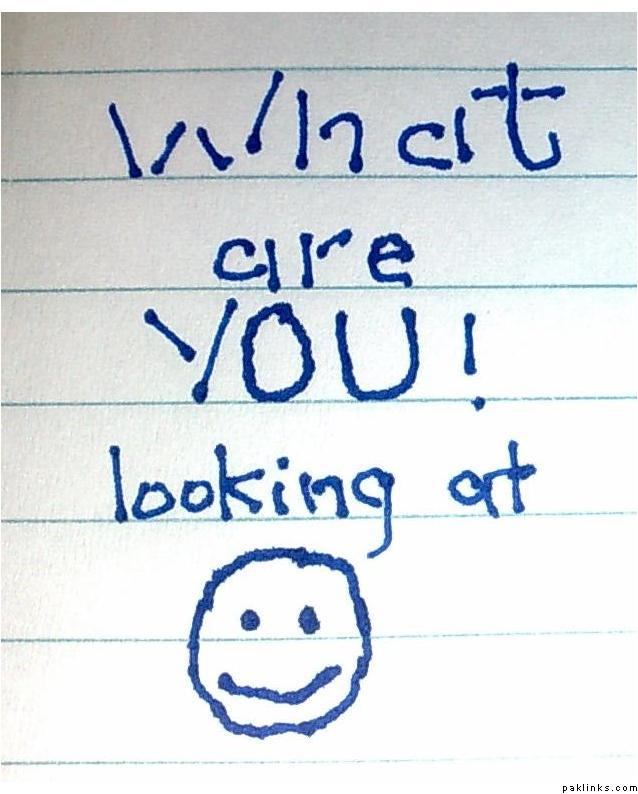 What
are
YOU!
looking at
paklinks.com